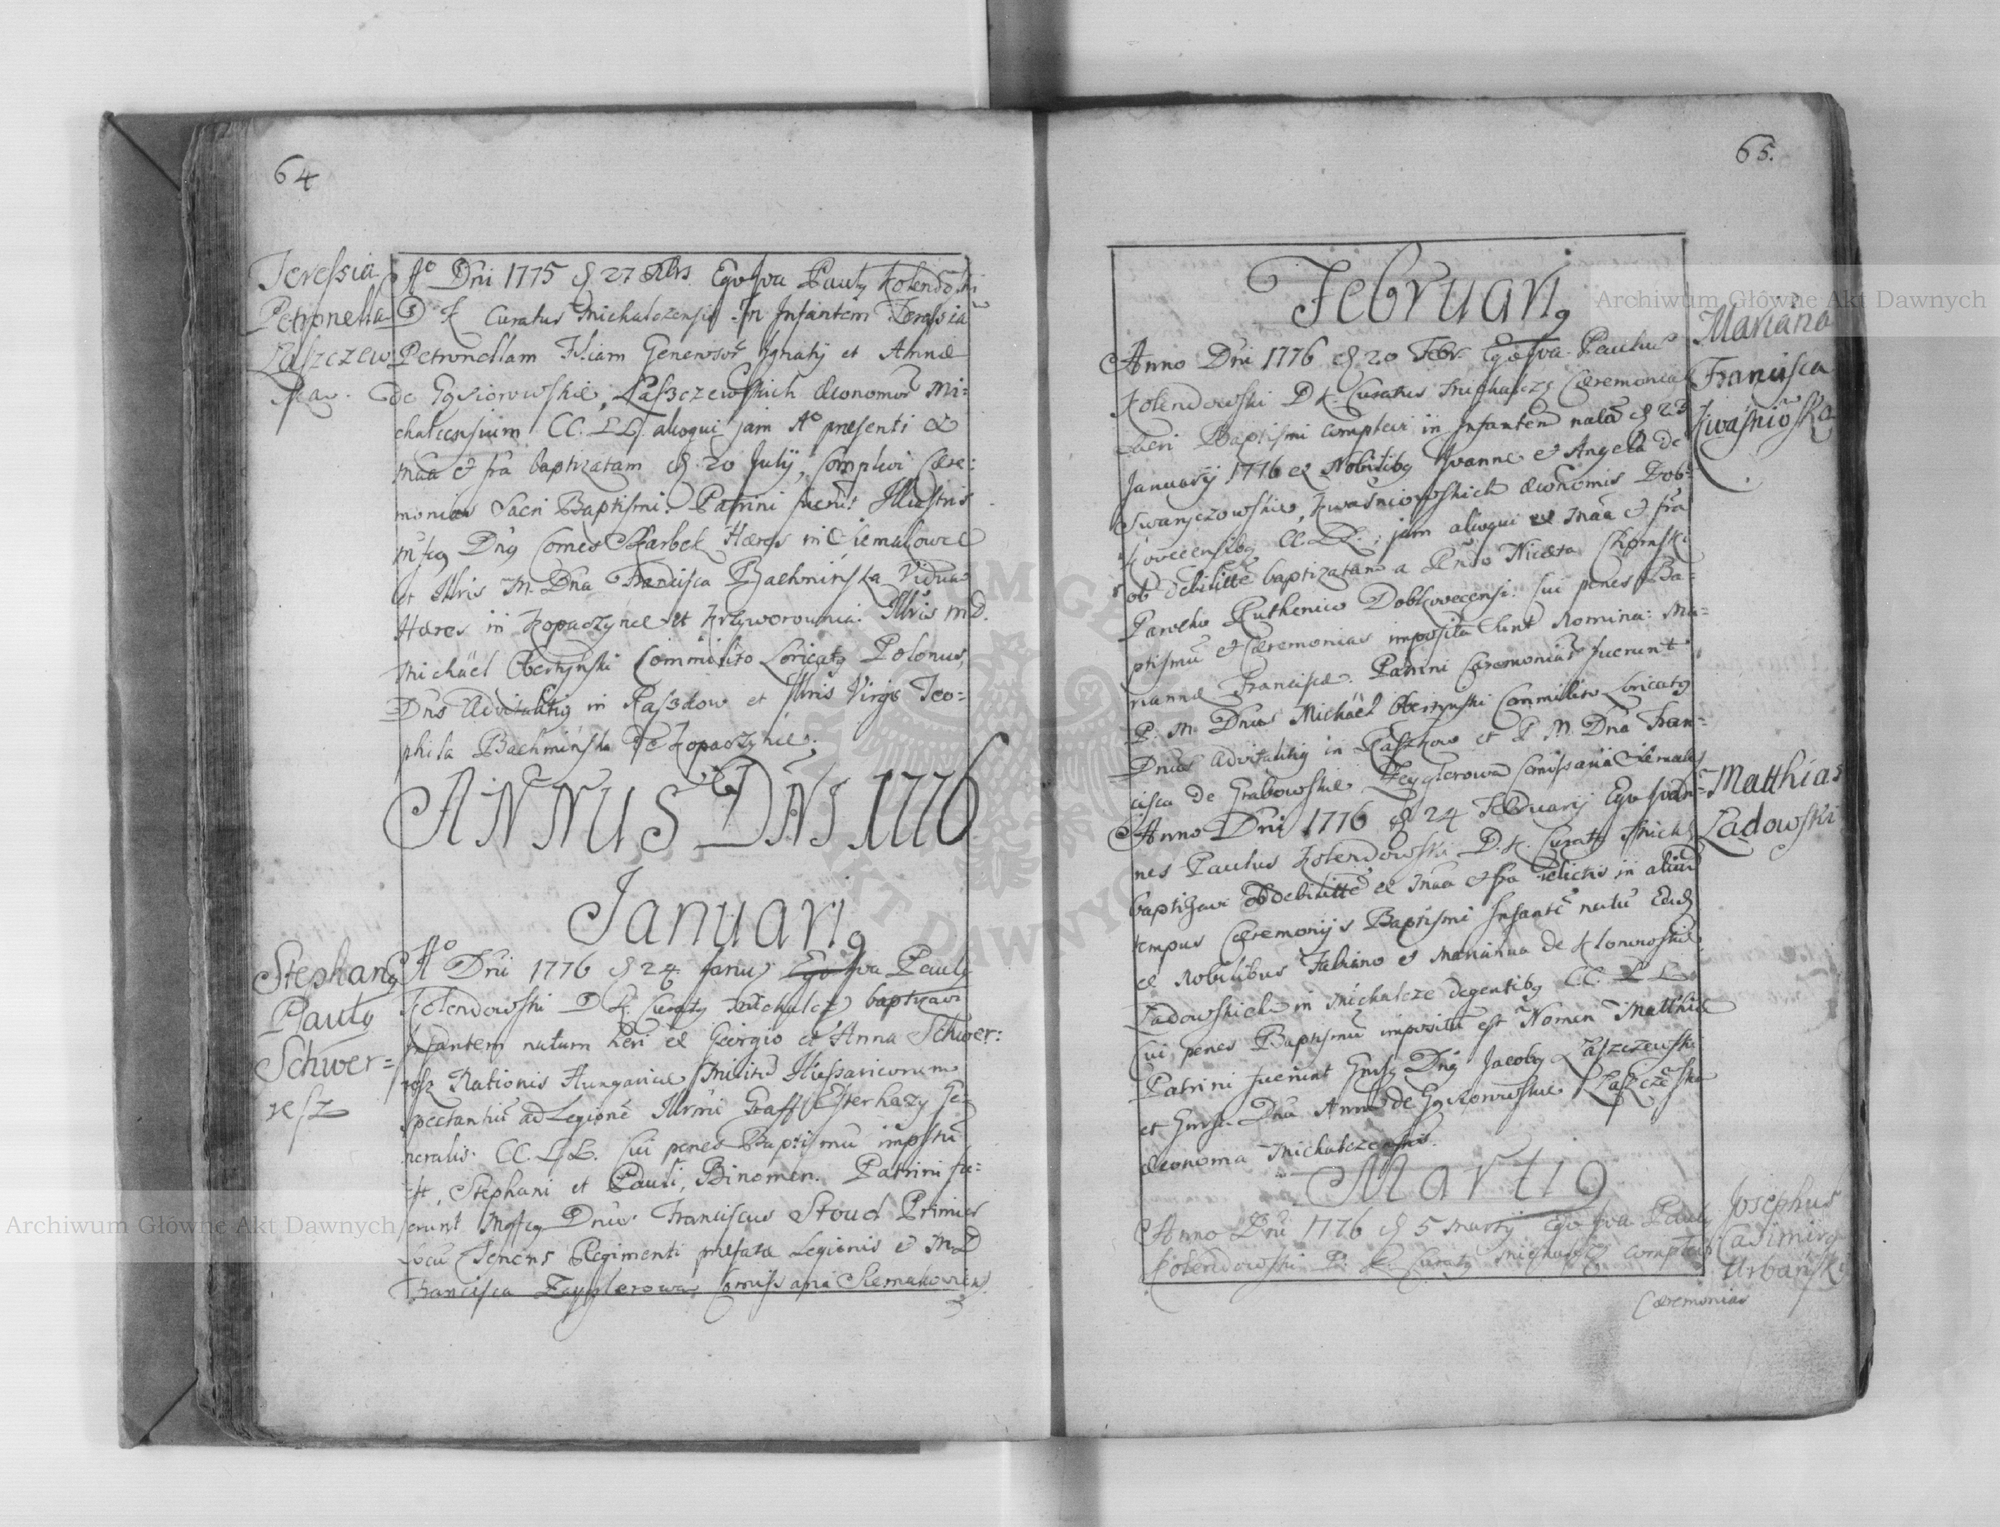 64
Teressia
Petronella
Łaszczew
skaw.
Aº Dni 1775 d 27 Xbrs. Ego Iva Pauly Kolendowski
D K Curatus Michalczensis In Infantem Teressiã
Petronellam Filiam Generosor Ignatij et Annæ
de Gąsiorowskie, Łaszczewskich Œconomor Mi-
chalcensium CC. LL. alioqui jam Aº presenti ex
maa et fra baptizatam d 20 Julij, Complevi Cære-
monias Sacri Baptismi. Patrini fuerut Illustris
Dng Comes Skarbek Hæres in Siemakowce
et Illris M. Dna Francisca Bachmińska Vidua
Hæres in Kopaczynce et Krzyworownia. Illris M.D.
Michäel Obertynski Commilito Loricatg Polonus,
Dns Advitalitig in Raszkow et Illris Virgo Teo-
phila Bachmińska de Kopaczynce.
ANNUS DNI 1776
Januarig
Stephang
Paulg
Schwer-
resz
Aº Dni 1776 d 24 Januj Ego Iva Paulg
Kolendowski D K Curatg Michalcz baptizavi
Infantem natum heri ex Georgio et Anna Schwer-
resz Nationis Hungaricæ Militũ Hussaricorum
spectantiũ ad Legionẽ Illrmi Graff Esterhazy Ge-
neralis CC. L L. Cui penes Baptismũ impstũ
est, Stephani et Pauli, Binomen. Patrini fu-
erunt Mgfcg Dnus Franciscus Stoud Primus
Locũ Tenens Regimenti præfatæ Legionis et M D
Francisca Zayglerowa Comissaria Siemakovien.
65.
Februarig
Mariana
Francisca
Kwaśniõska
Anno Dni 1776 d 20 Febr. Ego Iva Paulus
Kolendowski D K. Curatus Michalczę Cæremonias
Sacri Baptismi complevi in Infantem natã d 23
Januarij 1776 ex Nobilibg Ivanne et Angela de
Iwanyczowskie, Kwaśniowskich Œconomis Dob-
kovecensibg CC. LL.; jam alioqui ex maa et fra
ob debilittẽ baptizatam a Rndo Niceta Chomski
Parocho Ruthenico Dobkovecensi. Cui penes Ba-
ptismũ et Cæremonias imposita sunt Nomina: Ma-
riannæ Franciscæ. Patrini Cæremoniar fuerunt
P. M. Dnus Michäel Obertynski Commilito Loricatg
Dnus Advitalitig in Raszkow et P M Dna Fran-
cisca de Grabowskie Zeyglerowa Comissaria Siemako
Matthias
Ladowski
Anno Dni 1776 d 24 Februarij Ego Ioan-
nes Paulus Kolendowski D. K. Curatg Michl
baptizavi ob debilittẽ ex maa et fra relictis in aliud
tempus Cæremonijs Baptismi Infantẽ natũ Ead
ex Nobilibus Fabiano et Marianna de Klonowskie
Ladowskich in Michalcze degentibg C.C. L L.
Cui penes Baptismũ impositũ est Nomen Matthiæ
Patrini fuerunt Gnsg Dng Jacobg Łaszczewski
et Gnsa Dna Anna de Gąsiorowskie Łaszczẽska
Œconoma Michalczensis.
Martig
Josephus
Casimirg
Urbański
Anno Dni 1776 d 5 Martij Ego Iva Paulg
Kolendowski D K Curatg Michalcz complevi
Cæremonias
Archiwum Główne Akt Dawnych
Archiwum Główne Akt Dawnych
ARCHIWUM GŁÓWNE AKT DAWNYCH